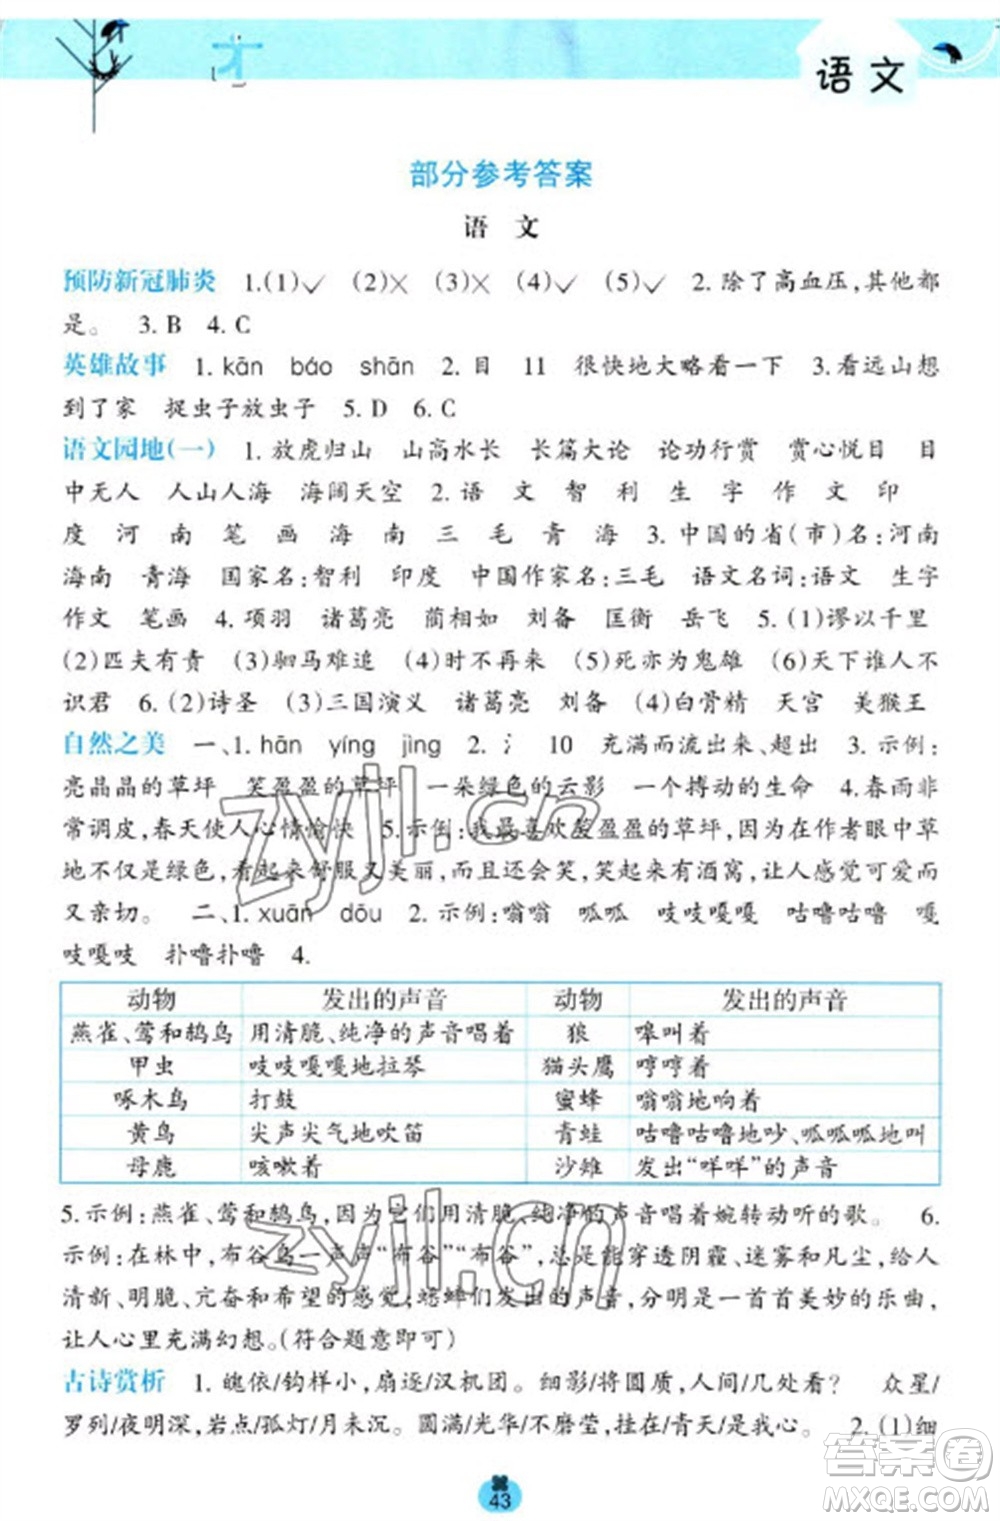 语文
部分参考答案
语 文
预防新冠肺炎 1.(1)✓ (2)× (3)× (4)✓ (5)✓ 2. 除了高血压,其他都
是。 3. B 4. C
英雄故事 1. kān báo shān 2. 目 11 很快地大略看一下 3. 看远山想
到了家 捉虫子放虫子 5. D 6. C
语文园地(一) 1. 放虎归山 山高水长 长篇大论 论功行赏 赏心悦目 目
中无人 人山人海 海阔天空 2. 语 文 智 利 生 字 作 文 印
度 河 南 笔 画 海 南 三 毛 青 海 3. 中国的省(市)名:河南
海南 青海 国家名:智利 印度 中国作家名:三毛 语文名词:语文 生字
作文 笔画 4. 项羽 诸葛亮 蔺相如 刘备 匡衡 岳飞 5. (1)谬以千里
(2)匹夫有责 (3)驷马难追 (4)时不再来 (5)死亦为鬼雄 (6)天下谁人不
识君 6. (2)诗圣 (3)三国演义 诸葛亮 刘备 (4)白骨精 天宫 美猴王
自然之美 一、1. hān yíng jìng 2. 氵 10 充满而流出来、超出 3. 示例:
亮晶晶的草坪 笑盈盈的草坪 一朵绿色的云影 一个搏动的生命 4. 春雨非
常调皮,春天使人心情愉快 5. 示例:我最喜欢笑盈盈的草坪,因为在作者眼中草
地不仅是绿色,看起来舒服又美丽,而且还会笑,笑起来有酒窝,让人感到可爱而
又亲切。 二、1. xuān dōu 2. 示例:嗡嗡 呱呱 吱吱嘎嘎 咕噜咕噜 嘎
吱嘎吱 扑噜扑噜 4.
动物 发出的声音 动物 发出的声音
燕雀、莺和鸫鸟 用清脆、纯净的声音唱着 狼 嗥叫着
甲虫 吱吱嘎嘎地拉琴 猫头鹰 哼哼着
啄木鸟 打鼓 蜜蜂 嗡嗡地响着
黄鸟 尖声尖气地吹笛 青蛙 咕噜咕噜地吵、呱呱呱地叫
母鹿 咳嗽着 沙雉 发出“咩咩”的声音
5. 示例:燕雀、莺和鸫鸟,因为它们用清脆、纯净的声音唱着婉转动听的歌。 6.
示例:在林中,布谷鸟一声声“布谷”“布谷”,总是能穿透阴霾、迷雾和凡尘,给人
清新、明脆、亢奋和希望的感觉;蟋蟀们发出的声音,分明是一首首美妙的乐曲,
让人心里充满幻想。(符合题意即可)
古诗赏析 1. 魄依/钩样小,扇逐/汉机团。细影/将圆质,人间/几处看? 众星/
罗列/夜明深,岩点/孤灯/月未沉。圆满/光华/不磨莹,挂在/青天/是我心。 2. (1)细
43
zyjl.cn
zyjl.cn
答案圈
MXQE.COM